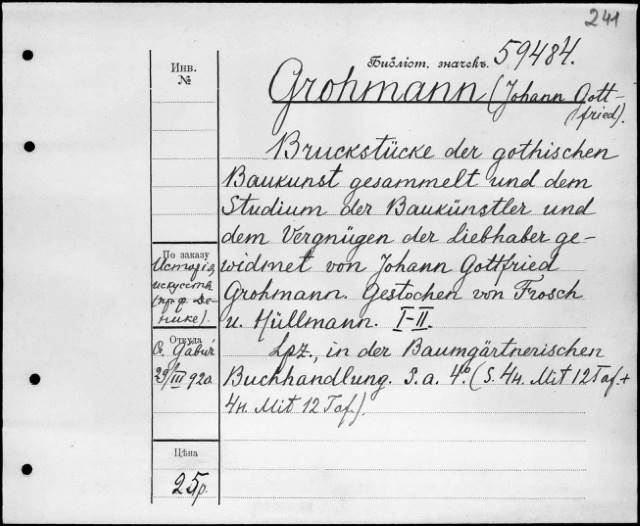 241
Библіот. значекъ. 59484.
Инв.
№
Grohmann (Johann Gott-
fried).
Bruckstücke der gothischen
Baukunst gesammelt und dem
Studium der Baukünstler und
dem Vergnügen der Liebhaber ge-
widmet von Johann Gottfried
Grohmann. Gestochen von Frosch
u. Hüllmann. I-II.
Lpz., in der Baumgärtnerischen
Buchhandlung. S. a. 4° (S. 4н. Mit 12 Taf. +
4н. Mit 12 Taf.).
По заказу
Исторія
искусств
(проф. Де-
нике).
Откуда
О. Габит
29/III 920
Цѣна
25р.